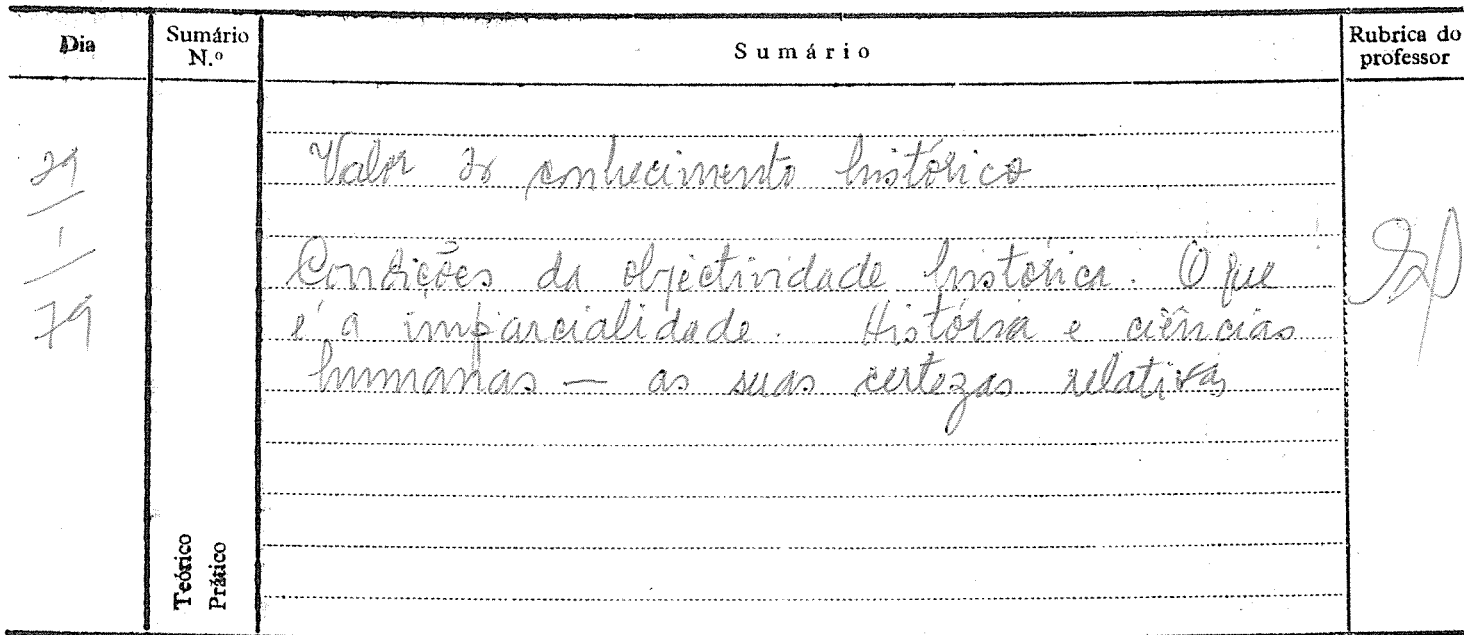 Dia
Sumário N.º
Sumário
Rubrica do professor
29
1
79
Valor do conhecimento histórico
Condições da objectividade historica. O que
é a imparcialidade. História e ciências
humanas — as suas certezas relativas
Teórico
Prático